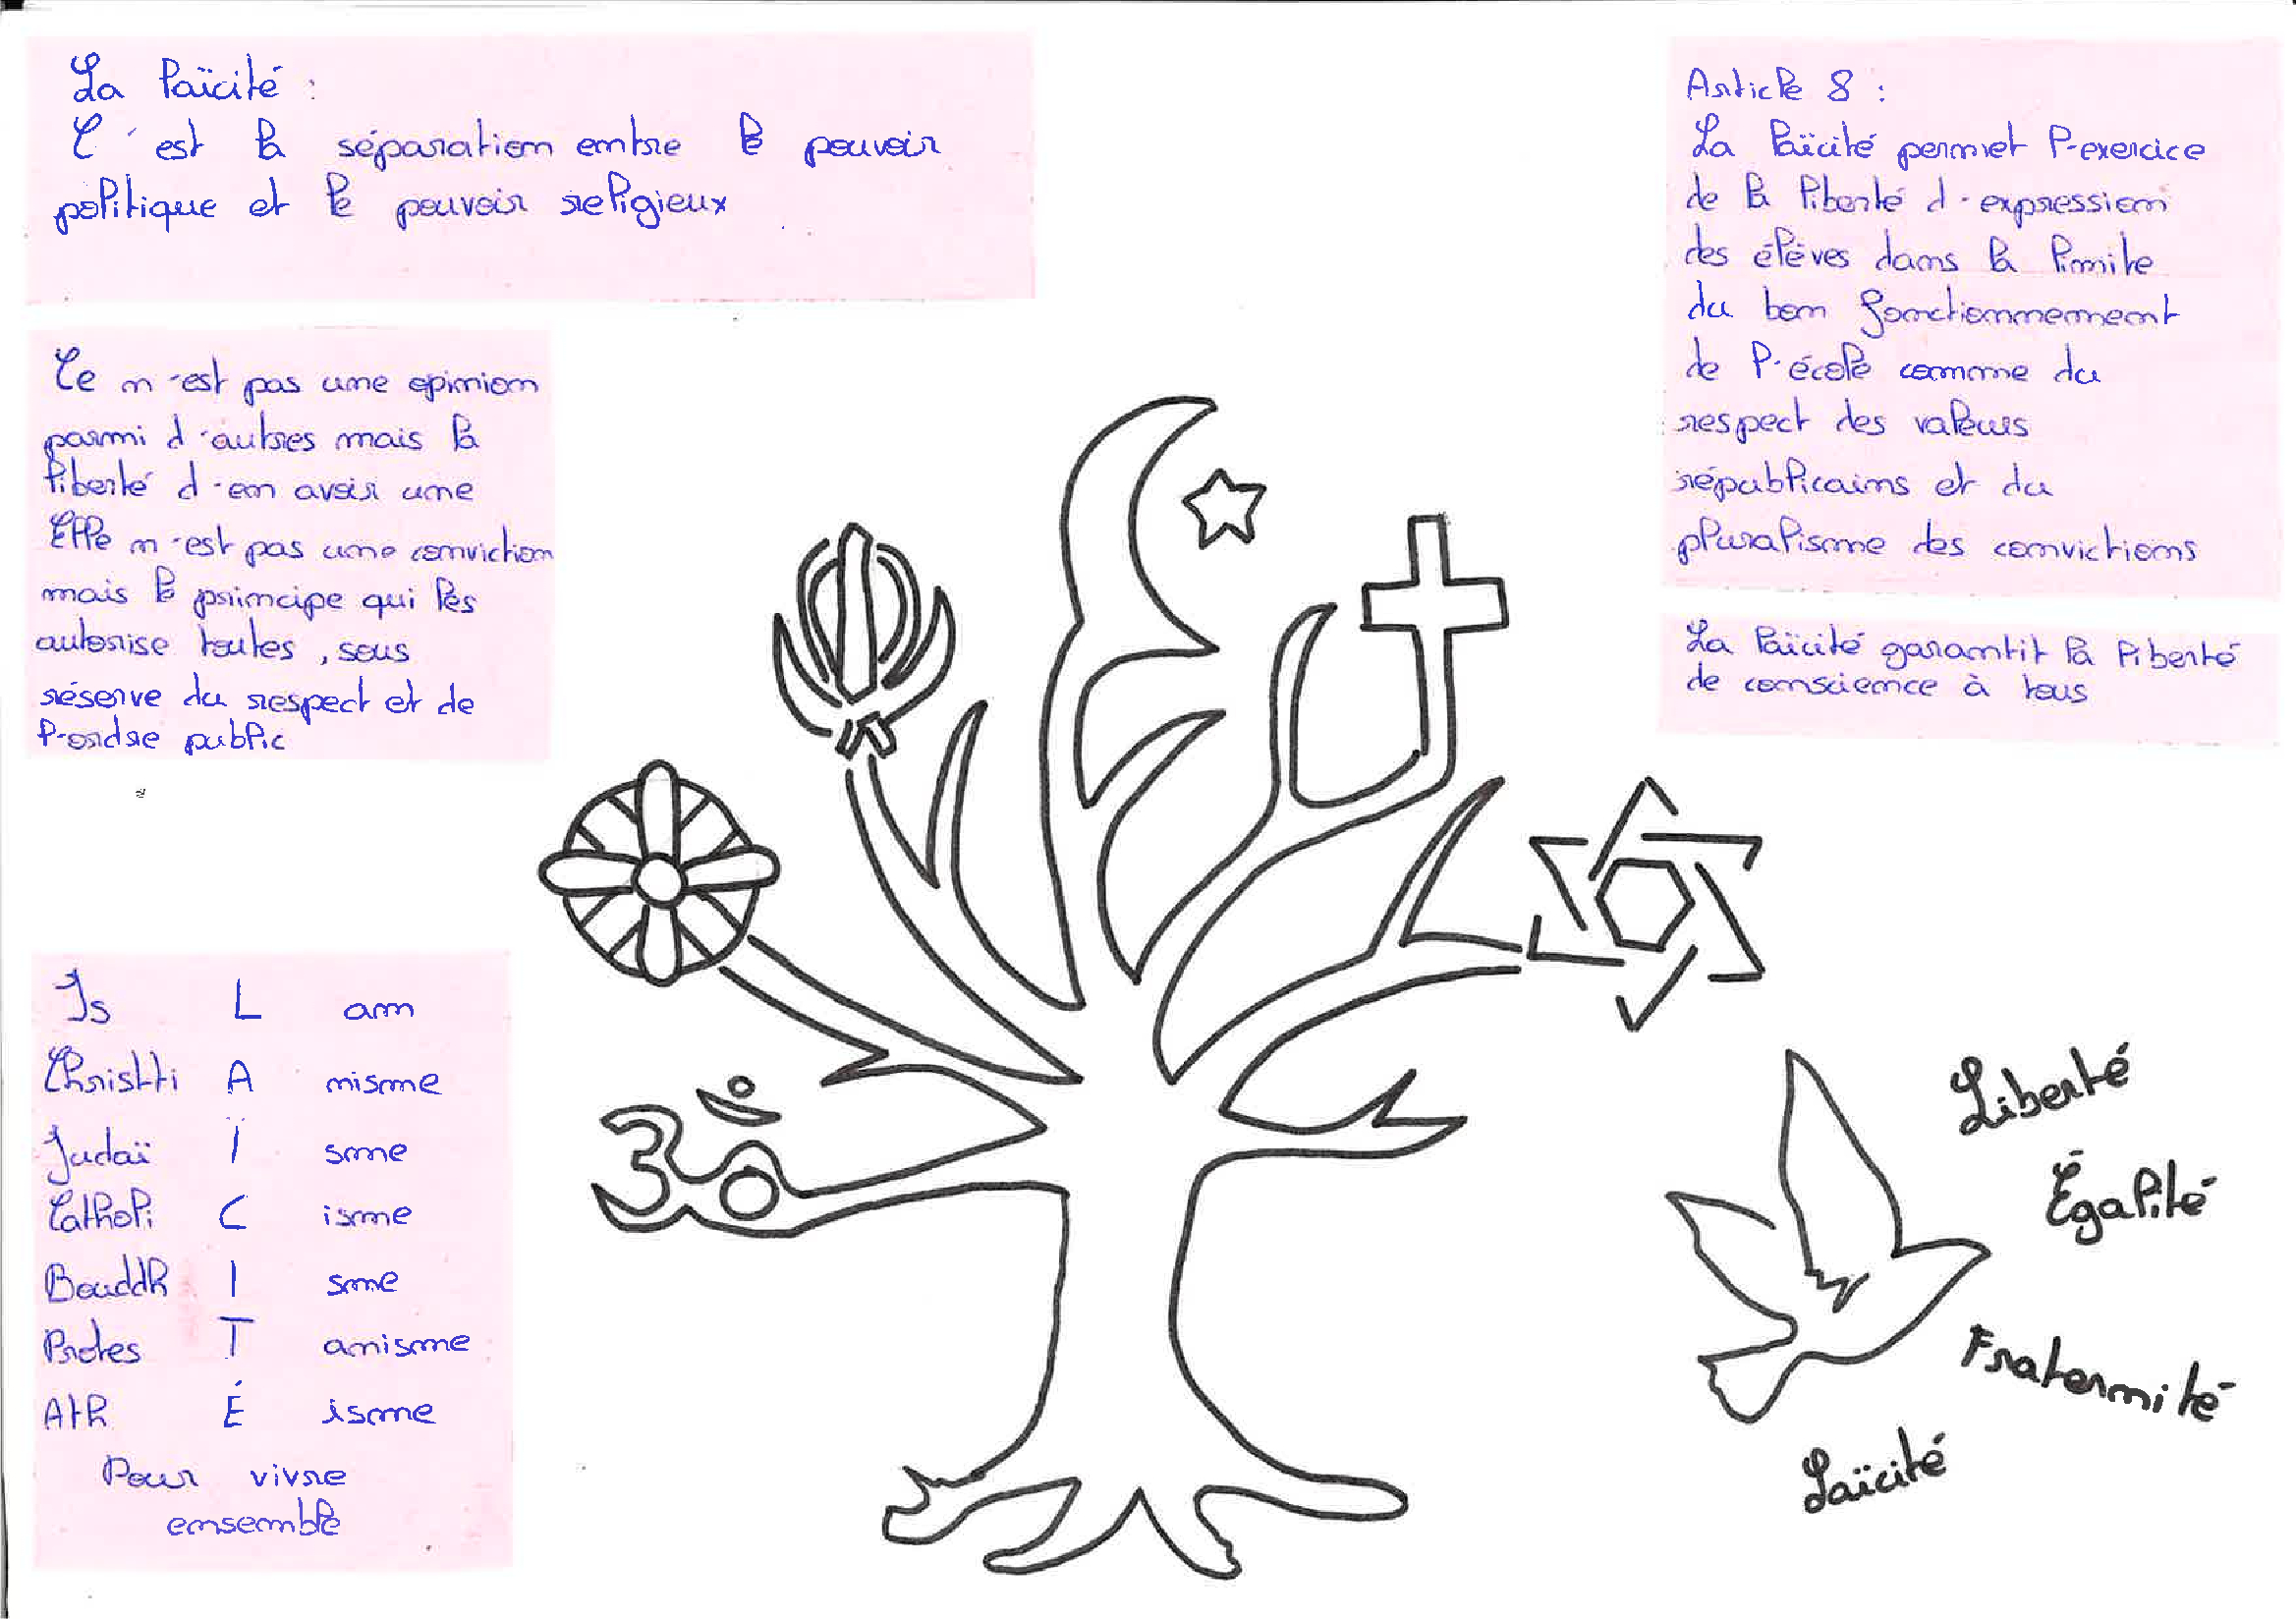 La laïcité :
C'est la séparation entre le pouvoir
politique et le pouvoir religieux
Ce n'est pas une opinion
parmi d'autres mais la
liberté d'en avoir une
Elle n'est pas une conviction
mais le principe qui les
autorise toutes, sous
réserve du respect et de
l'ordre public
Is L am
Christi A nisme
Judaï ï sme
Catholi C isme
Bouddh I sme
Protes T anisme
Ath É isme
Pour vivre
ensemble
Article 8 :
La laïcité permet l'exercice
de la liberté d'expression
des élèves dans la limite
du bon fonctionnement
de l'école comme du
respect des valeurs
républicains et du
pluralisme des convictions
La laïcité garantit la liberté
de conscience à tous
Liberté
Égalité
Fraternité
Laïcité